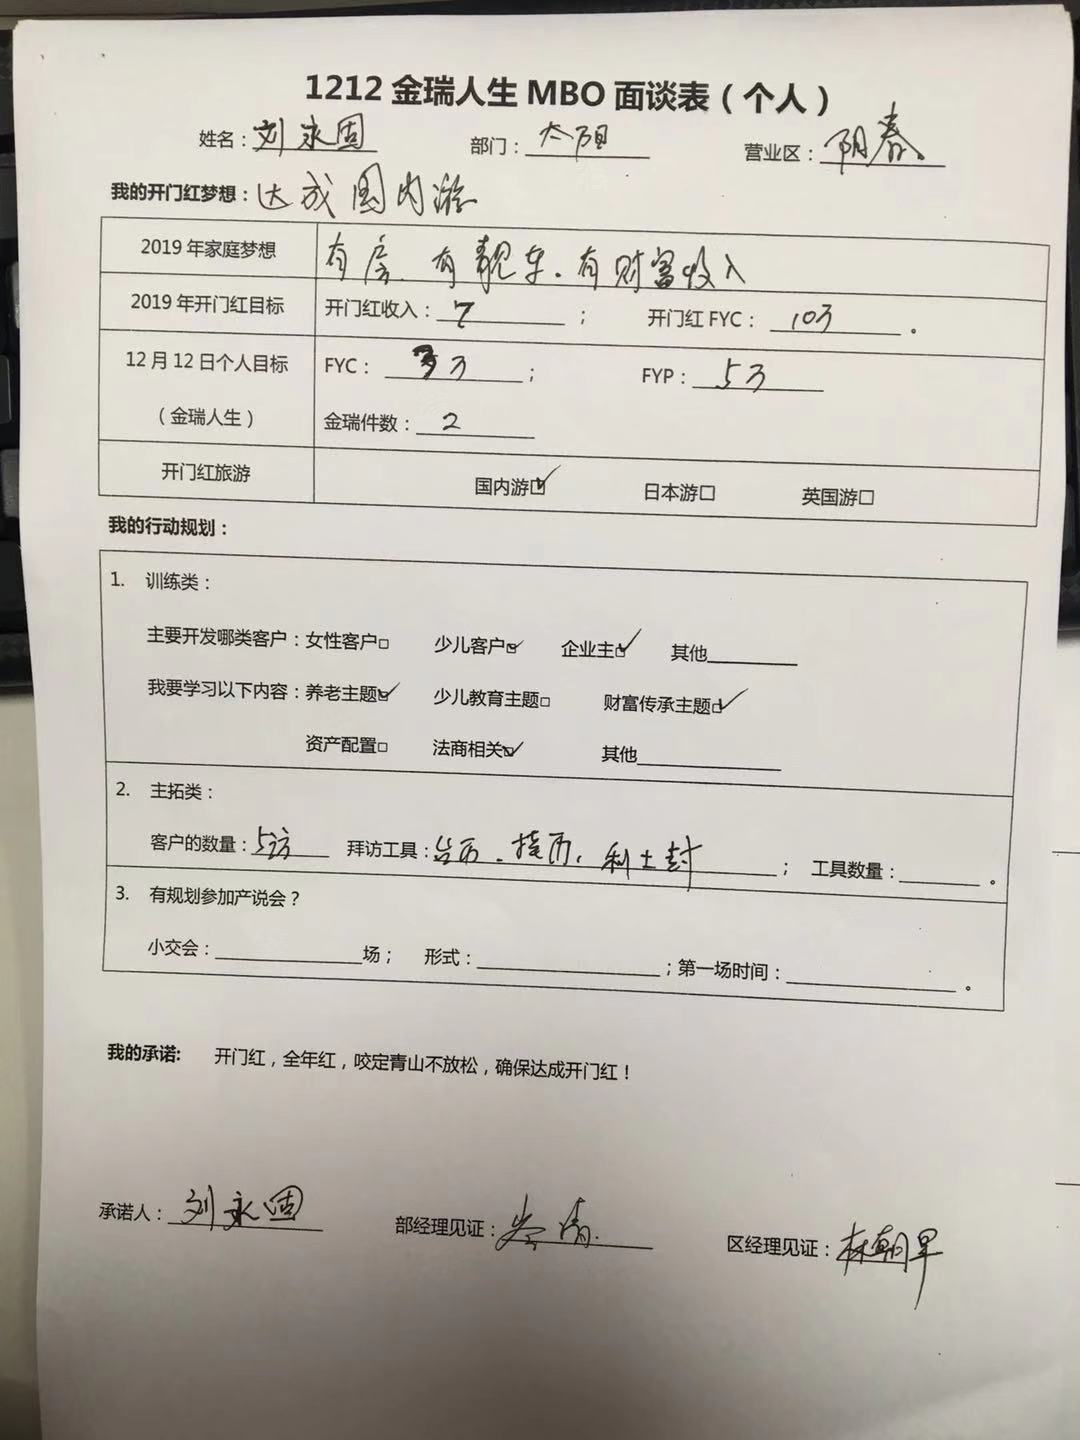 1212金瑞人生MBO面谈表（个人）
姓名：刘永固 部门：太阳 营业区：阴春
我的开门红梦想：达成国内游
2019年家庭梦想 有房、有靓车.有财富收入
2019年开门红目标 开门红收入：7 ； 开门红FYC： 10万 。
12月12日个人目标 FYC： 3万 ； FYP： 5万
（金瑞人生） 金瑞件数： 2
开门红旅游 国内游☑ 日本游□ 英国游□
我的行动规划：
1. 训练类：
主要开发哪类客户：女性客户□ 少儿客户☑ 企业主☑ 其他
我要学习以下内容：养老主题☑ 少儿教育主题□ 财富传承主题☑
资产配置□ 法商相关☑ 其他
2. 主拓类：
客户的数量：5访 拜访工具：台历、挂历, 利士封 ； 工具数量： 。
3. 有规划参加产说会？
小交会： 场； 形式： ；第一场时间： 。
我的承诺: 开门红，全年红，咬定青山不放松，确保达成开门红！
承诺人：刘永固 部经理见证： 区经理见证：林朝早